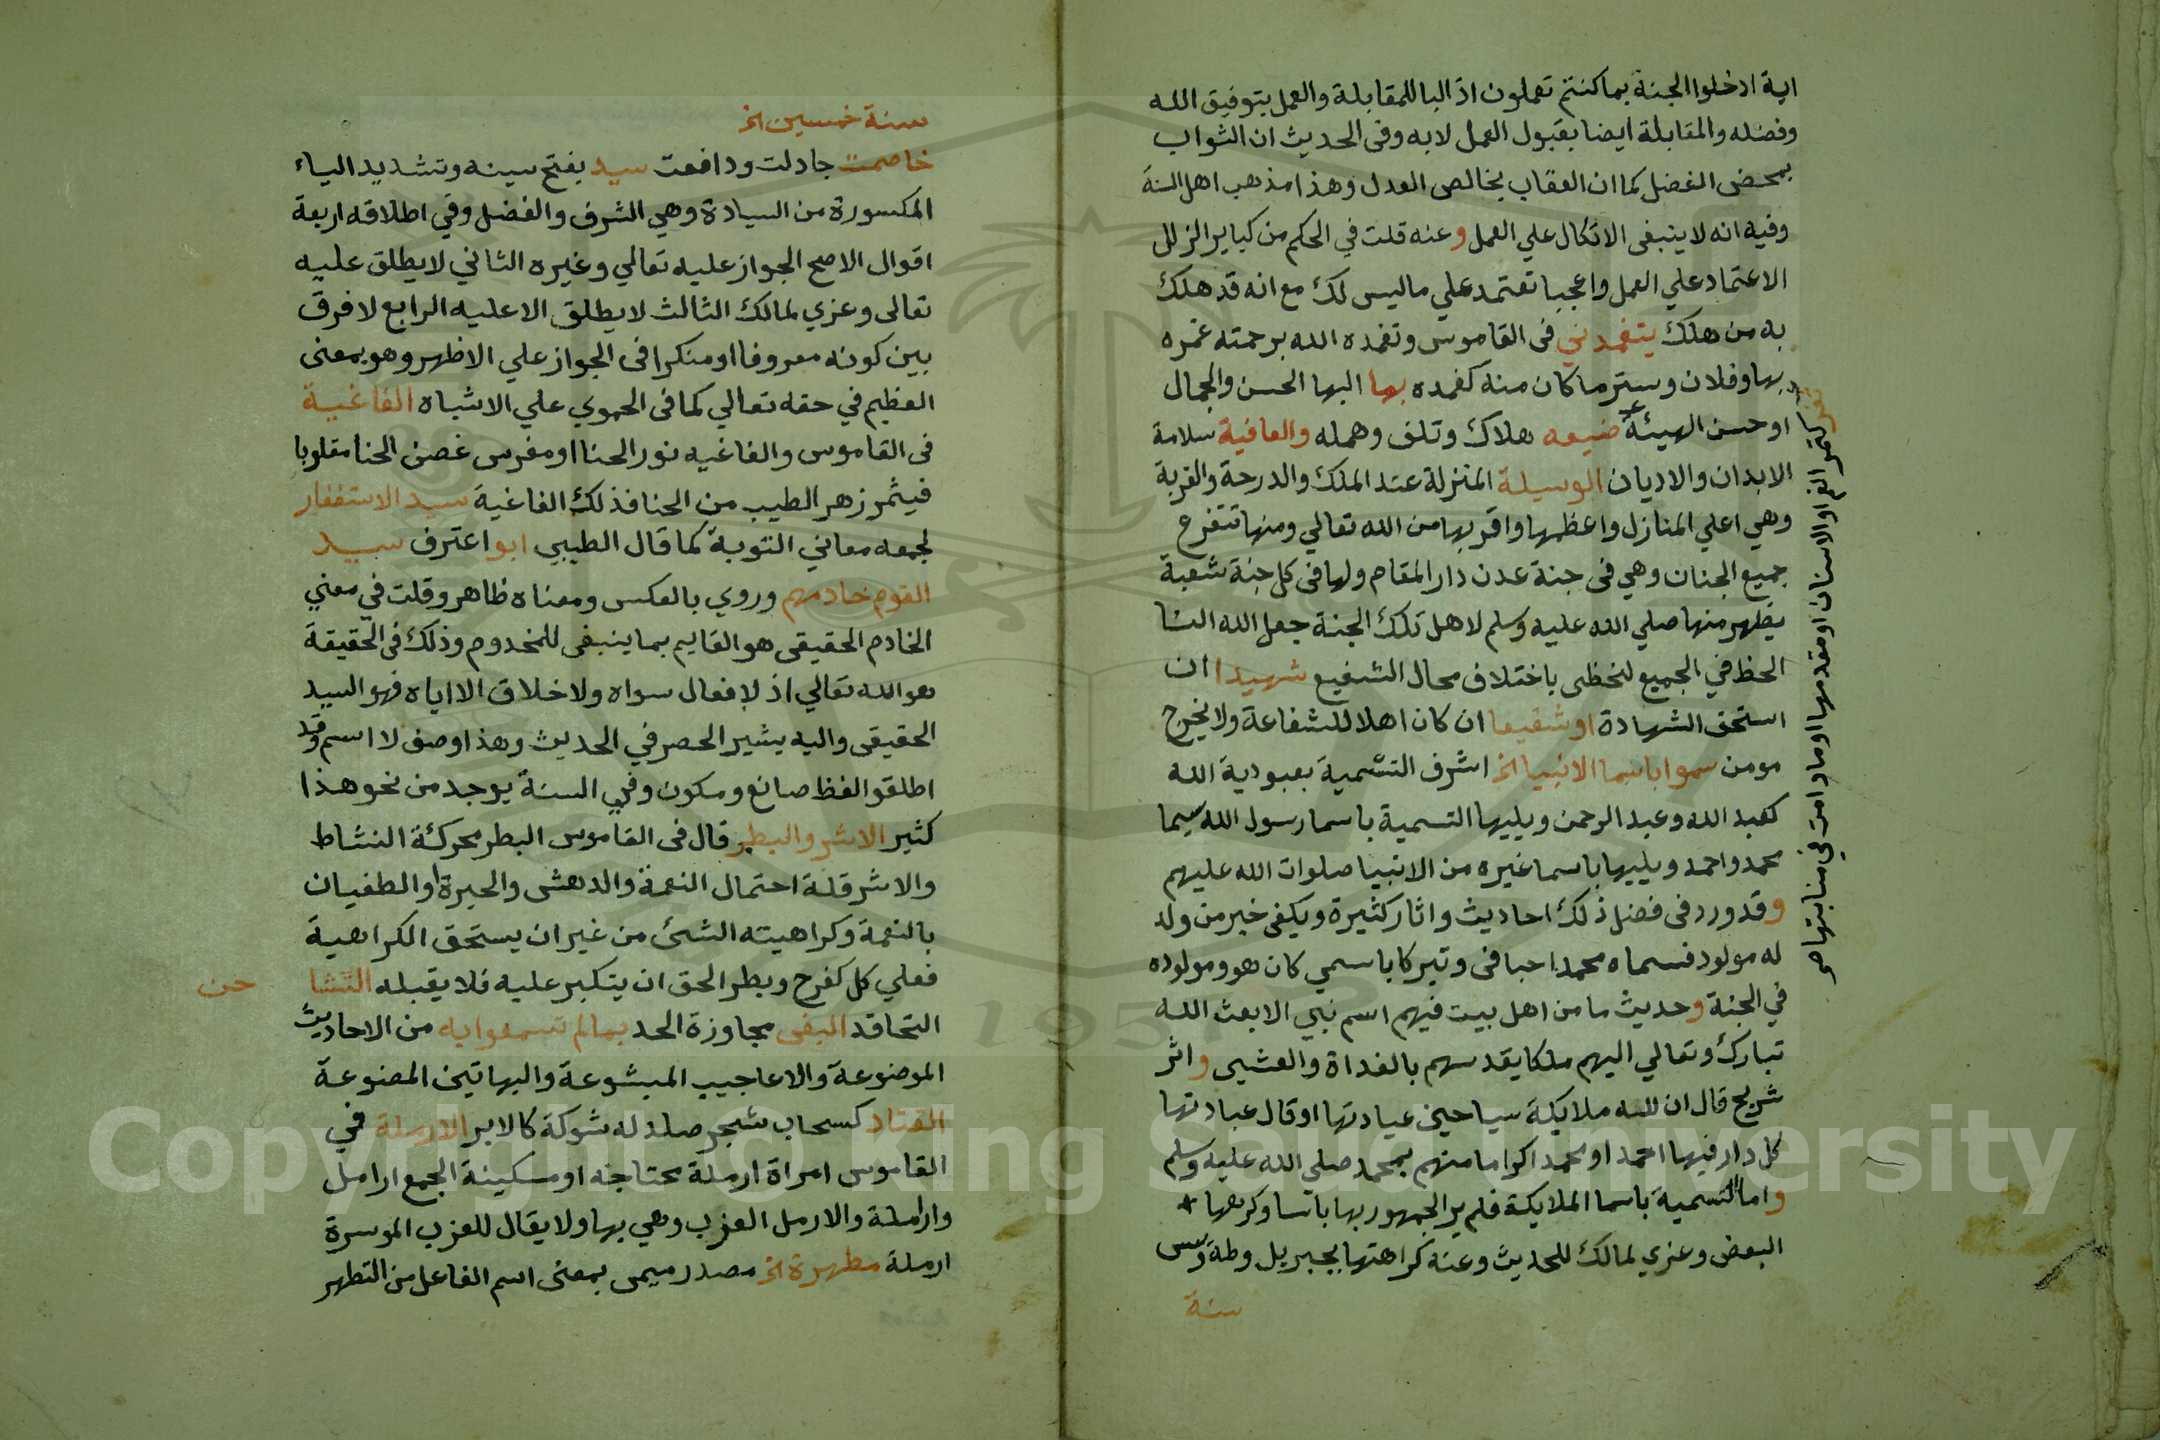 اية ادخلوا الجنة بما كنتم تعملون اذ البا للمقابلة والعمل بتوفيق الله
وفضله والمقابلة ايضا بقبول العمل لا به وفي الحديث ان الثواب
بمحض الفضل كما ان العقاب بخالص العدل وهذا مذهب اهل السنة
وفيه انه لا ينبغي الاتكال علي العمل وعنه قلت في الحكم من كباير الزلل
الاعتماد علي العمل واعجبا تعتمد علي ما ليس لك مع انه قد هلك
به من هلك يتغمدني في القاموس وتغمده الله برحمته غمره
بها وفلان وستر ما كان منه كغمده بها البها الحسن والجمال
او حسن الهيئة ضيعه هلاك وتلف وهمله والعافية سلامة
الابدان والاديان الوسيلة المنزلة عند الملك والدرجة والقربة
وهي اعلي المنازل واعظمها واقربها من الله تعالي ومنها تتفرع
جميع الجنان وهي في جنة عدن دار المقام ولها في كل جنة شعبة
يظهر منها صلي الله عليه وسلم لاهل تلك الجنة جعل الله النا
الحظ في الجميع لنحظى باختلاف محال الشفيع شهيدا ان
استحق الشهادة او شفيعا ان كان اهلا للشفاعة ولا يخرج
مومن سموا باسما الانبيا الخ اشرف التسمية بعبودية الله
كعبد الله وعبد الرحمن ويليها التسمية باسما رسول الله سيما
محمد واحمد ويليها باسما غيره من الانبيا صلوات الله عليهم
وقد ورد في فضل ذلك احاديث واثار كثيرة ويكفي خبر من ولد
له مولود فسماه محمدا حبا في وتبركا باسمي كان هو ومولوده
في الجنة وحديث ما من اهل بيت فيهم اسم نبي الا بعث الله
تبارك وتعالي اليهم ملكا يقدسهم بالغداة والعشي واثر
شريح قال ان لله ملايكة سياحين عيادتها او قال عبادتها
كل دار فيها احمد او محمد اكراما منهم بمحمد صلي الله عليه وسلم
واما التسمية باسما الملايكة فلم ير الجمهور بها باسا وكرهها
البعض وعزي لمالك للحديث وعنه كراهتها بجبريل وطه ويس
سنة
كثمر الفم او الاسنان او مقدمها او ما دامت في منابتها
سنة خمسين الخ
خاصمت جادلت ودافعت سيد بفتح سينه وتشديد الياء
المكسورة من السيادة وهي الشرف والفضل وفي اطلاقه اربعة
اقوال الاصح الجواز عليه تعالي وغيره الثاني لا يطلق عليه
تعالى وعزي لمالك الثالث لا يطلق الا عليه الرابع لا فرق
بين كونه معروفا او منكرا في الجواز علي الاظهر وهو بمعنى
العظيم في حقه تعالي كما في الحموي علي الاشباه الفاغية
في القاموس والفاغيه نور الحنا او مغرس غصن الحنا مقلوبا
فيثمر زهر الطيب من الحنا فذلك الفاغية سيد الاستغفار
لجمعه معاني التوبة كما قال الطيبي ابو اعترف سيد
القوم خادمهم وروي بالعكس ومعناه ظاهر وقلت في معني
الخادم الحقيقي هو القايم بما ينبغي للمخدوم وذلك في الحقيقة
هو الله تعالي اذ لا فعال سواه ولا خلاق الا اياه فهو السيد
الحقيقي واليه يشير الحصر في الحديث وهذا وصف لا اسم وقد
اطلقوا لفظ صانع ومكون وفي السنة يوجد من نحو هذا
كثير الاشر والبطر قال في القاموس البطر محركة النشاط
والاشر قلة احتمال النعمة والدهش والحيرة او الطغيان
بالنعمة وكراهيته الشئ من غير ان يستحق الكراهية
فعلي كل كفرح وبطر الحق ان يتكبر عليه فلا يقبله التشا
حن
التحاقد البغى مجاوزة الحد بمالم تسمعوا به من الاحاديث
الموضوعة والاعاجيب المبشوعة والبهاتين المصنوعة
القتاد كسحاب شجر صلد له شوكة كالابر الارملة في
القاموس امراة ارملة محتاجة او مسكينة الجمع ارامل
وارامله والارمل العزب وهي بها ولا يقال للعزب الموسرة
ارملة مطهرة الخ مصدر ميمي بمعنى اسم الفاعل من التطهر
Copyright © King Saud University
1957